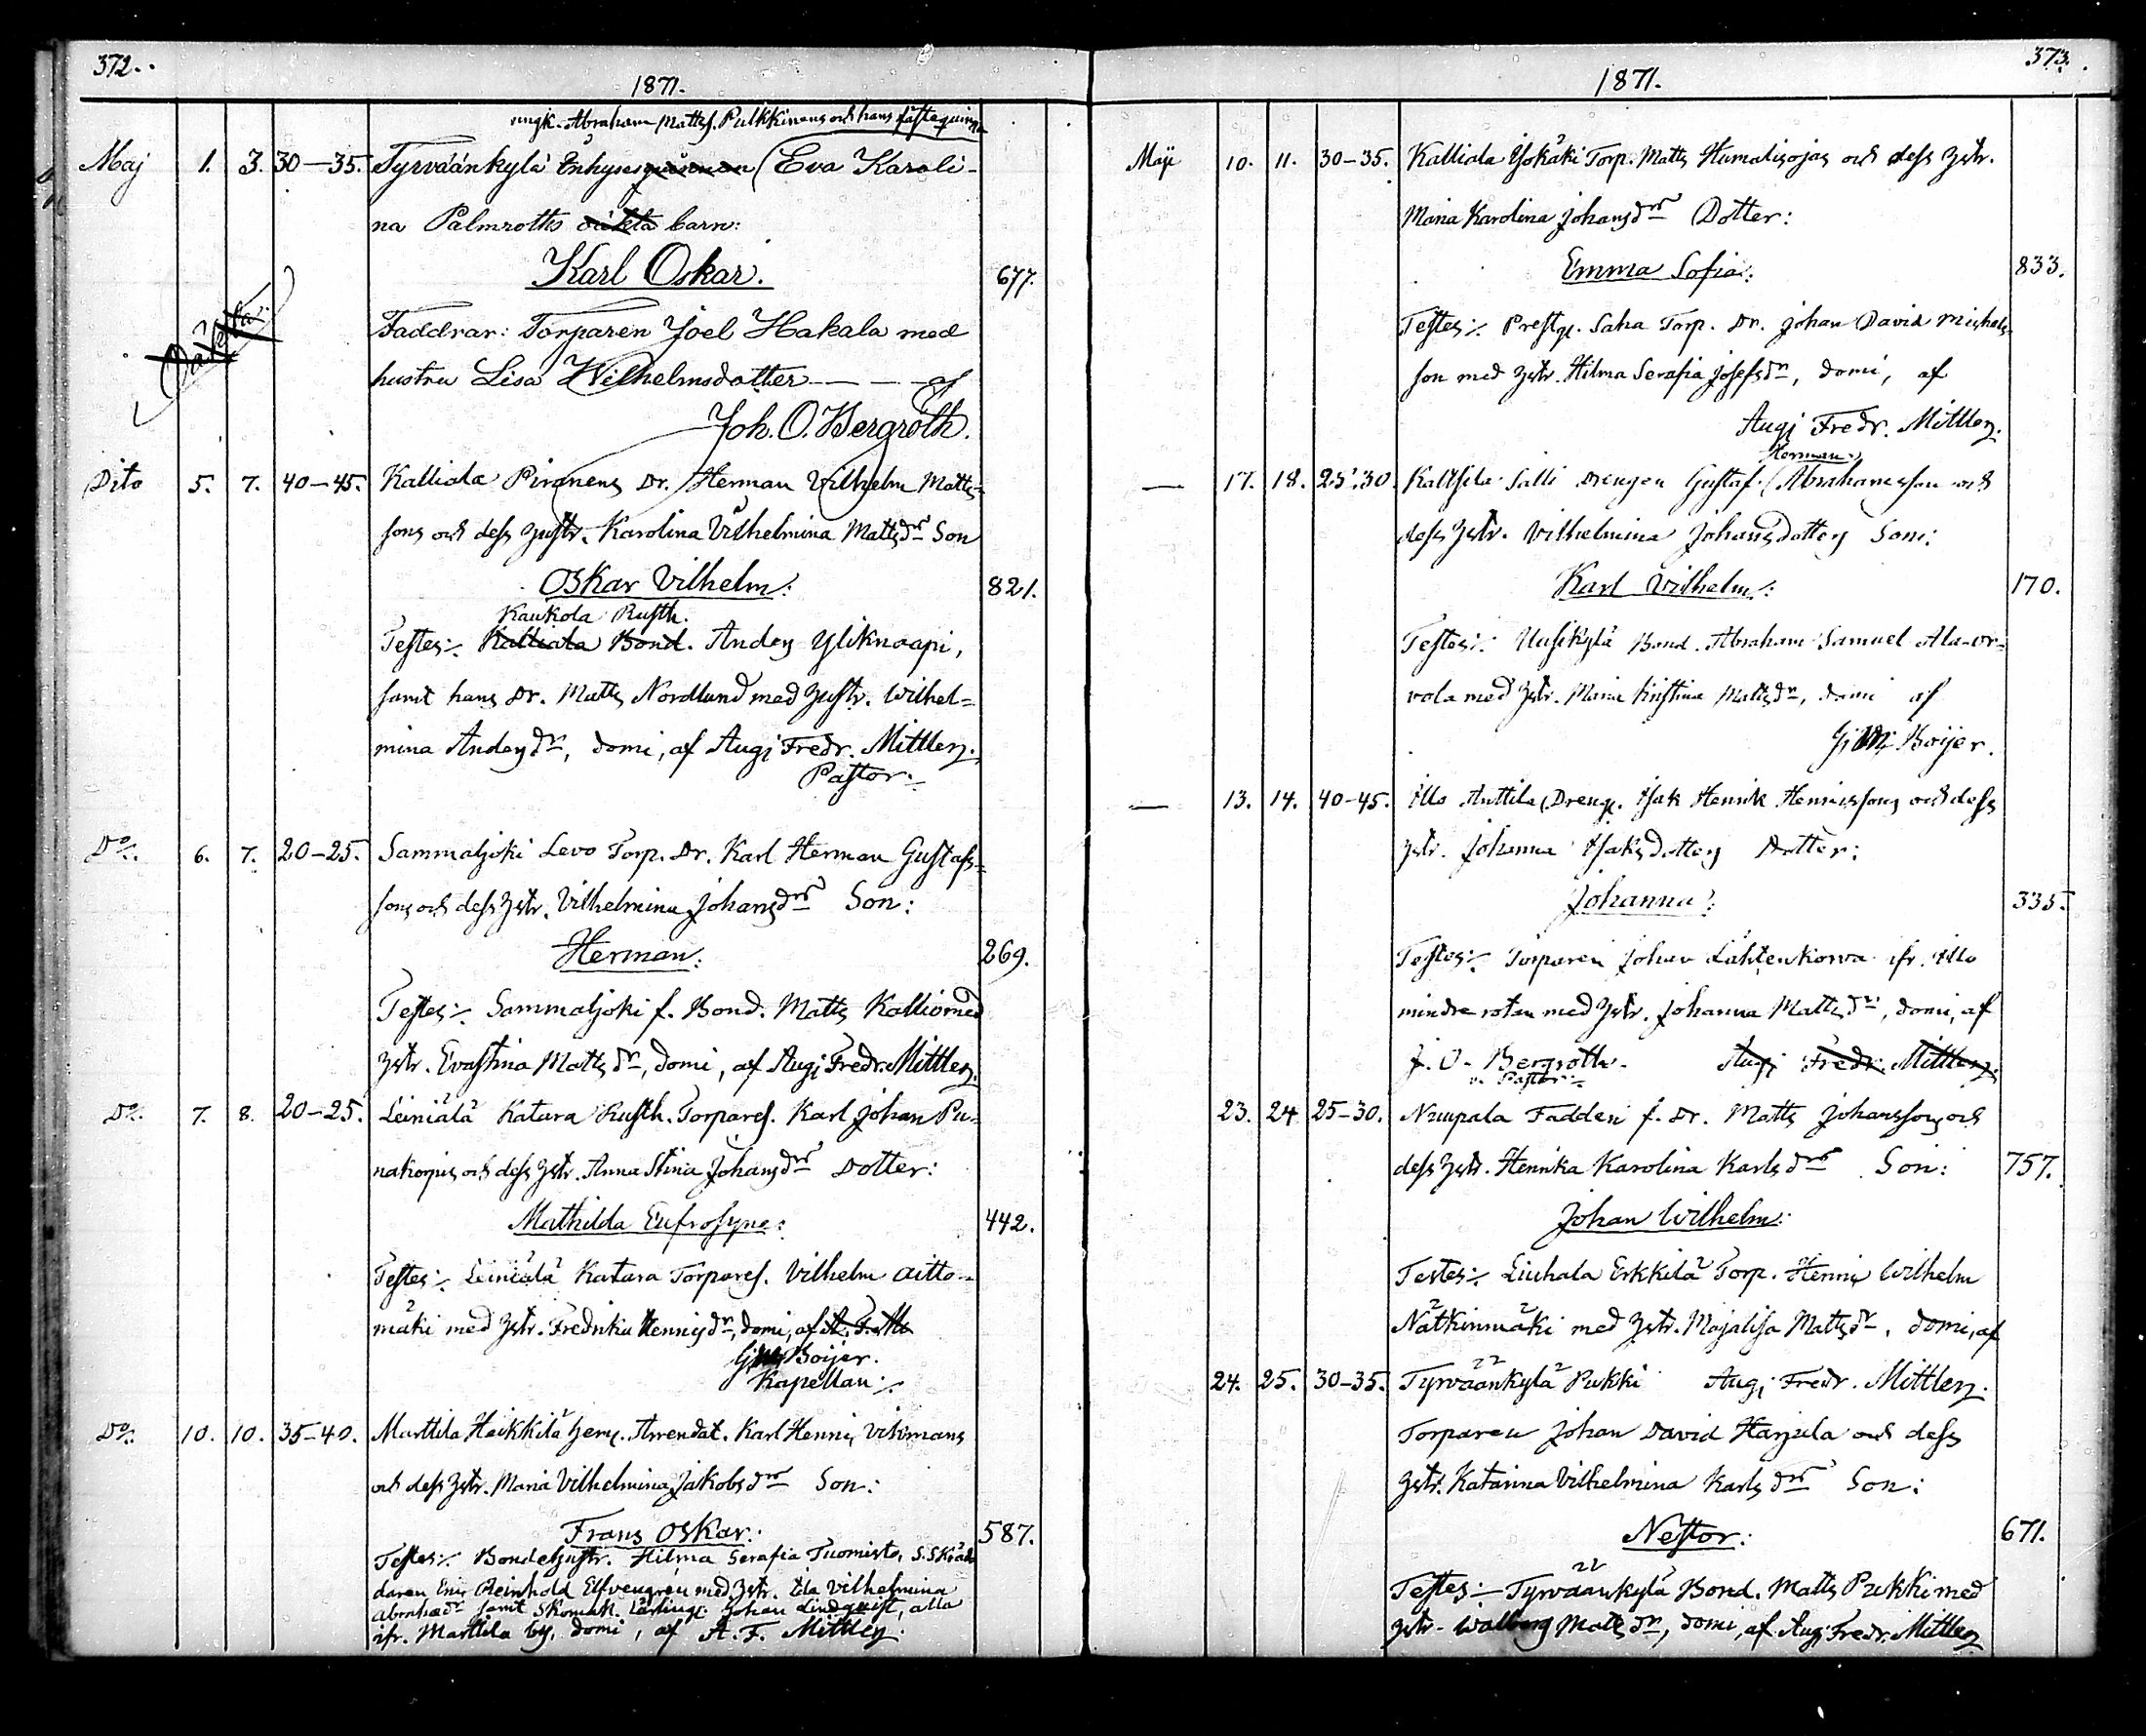 372.
1871.
ungk. Abraham Mattss. Pulkkinens och hans fästeqvinna
Maj 1. 3. 30–35. Tyrväänkylä Inhyses (Eva Karoli-
na Palmroths oäkta barn:
Karl Oskar. 677.
Oäkta
Faddrar: Torparen Joel Hakala med
hustru Lisa Wilhelmsdotter — — — af
Joh. O. Bergroth.
Dito 5. 7. 40–45. Kalliala Pironens Dr. Herman Vilhelm Matts-
sons och dess hustr. Karolina Vilhelmina Mattsdrs Son
Oskar Vilhelm: 821.
Kaukola Rusth.
Testes:/. Kalliala Bond. Anders Yliknaapi,
samt hans Dr. Matts Nordlund med hustr. Wilhel=
mina Andersdr, domi, af Aug; Fredr. Mittler.
Pastor:/.
Do/. 6. 7. 20–25. Sammaljoki Levo Torp. Dr. Karl Herman Gustafs=
sons och dess hstr. Vilhelmina Johansdrs Son:
Herman: 269.
Testes:/. Sammaljoki f. Bond. Matts Kallio med
hstr. Evastina Mattsdr, domi, af Aug; Fredr. Mittler.
Do/. 7. 8. 20–25. Leiniälä Katara Rusth. Torpares. Karl Johan Pu-
nakopis och dess hstr. Anna Stina Johansdrs Dotter:
Mathilda Eufrosyne: 442.
Testes:/. Leiniälä Katara Torpares. Vilhelm Aitto-
mäki med hstr. Fredrika Henrisdr, domi, af A. F. Mi
Boijer.
Kapellan:/.
Do/. 10. 10. 35–40. Marttila Heikkilä hem. Arrendat. Karl Henric Vikmans
och dess hstr. Maria Vilhelmina Jakobsdrs Son:
Frans Oskar: 587.
Testes:/. Bondehustr. Hilma Serafia Tuomisto, S. Skräd
daren Eric Reinhold Elfvengren med hstr. Ida Vilhelmina
Abrahadr samt Skomak. Lärlinge Johan Lindqvist, alla
ifr. Marttila by, domi, af A. F. Mittler.
373.
1871.
Maji 10. 11. 30–35. Kalliala Ylokäki Torp. Matts Humalisojas och dess hstr.
Maria Karolina Johansdrs Dotter:
Emma Sofia: 833.
Testes:/. Prestg. Saha Torp. Dr. Johan David Michels-
son med hstr. Hilma Serafia Josefsdr, domi, af
Aug; Fredr. Mittler.
Herman
— 17. 18. 25.30. Kaltsila Salli Drengen Gustaf (Abrahamsson och
dess hstr. Vilhelmina Johansdotters Son:
Karl Vilhelm: 170.
Testes:/. Uusikylä Bond. Abraham Samuel Ala-or=
vola med hstr. Maria Kristina Mattsdr, domi af
Boijer.
— 13. 14. 40–45. Illo Anttila Dreng. Isak Henrik Henrissons och dess
hstr. Johanna Isaksdotters Dotter:
Johanna: 335.
Testes:/. Torparen Johan Lähtenkorva ifr. Illo
mindre rotan med hstr. Johanna Mattsdr, domi, af
J. O. Bergroth. Aug; Fredr. Mittler.
v. Pastor:/.
23. 24 25–30. Nuupala Fadden f. Dr. Matts Johanssons och
dess hstr. Henrika Karolina Karlsdrs Son: 757.
Johan Wilhelm:
Testes:/. Liuhala Erkkilä Torp. Henric Wilhelm
Nätkinmäki med hstr. Majalisa Mattsdr, domi, af
24. 25. 30–35. Tyrväänkylä Pukki Aug; Fredr. Mittler.
Torparen Johan David Harjula och dess
hstr. Katarina Vilhelmina Karlsdrs Son:
Nestor: 671.
Testes:/. Tyrväänkylä Bond. Matts Pukki med
hstr. Walborg Mattsdr, domi, af Aug; Fredr. Mittler